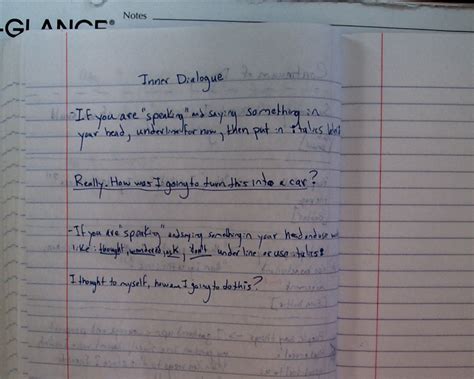 -GLANCE®
Notes
Inner Dialogue
- If you are "speaking" and saying something in
your head, underline for now, then put in italics
Really. How was I going to turn this into a car?
- If you are "speaking" and saying something in your head and use
like: thought, wondered, ask, don't underline or use italics
I thought to myself, how am I going to do this?